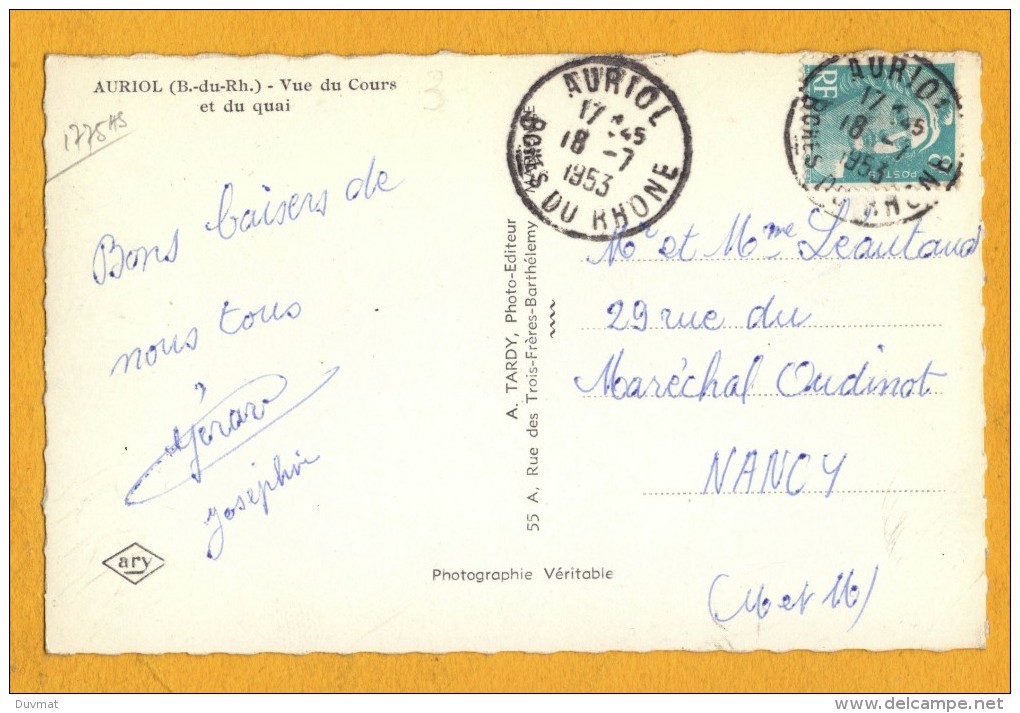 AURIOL (B.-du-Rh.) - Vue du Cours
et du quai
3
1775 AS
Bons baisers de
nous tous
Gérard
Joséphine
ary
A. TARDY, Photo-Editeur
55 A, Rue des Trois-Frères-Barthélemy
Photographie Véritable
AURIOL
17 45
18 -7
1953
BCHES DU RHONE
AURIOL
17 45
18 -7
1953
BCHES DU RHONE
RF
POSTES
Mr et Mme Leautaud
29 rue du
Maréchal Oudinot
NANCY
(M et M)
Duvmat
delcampe.net